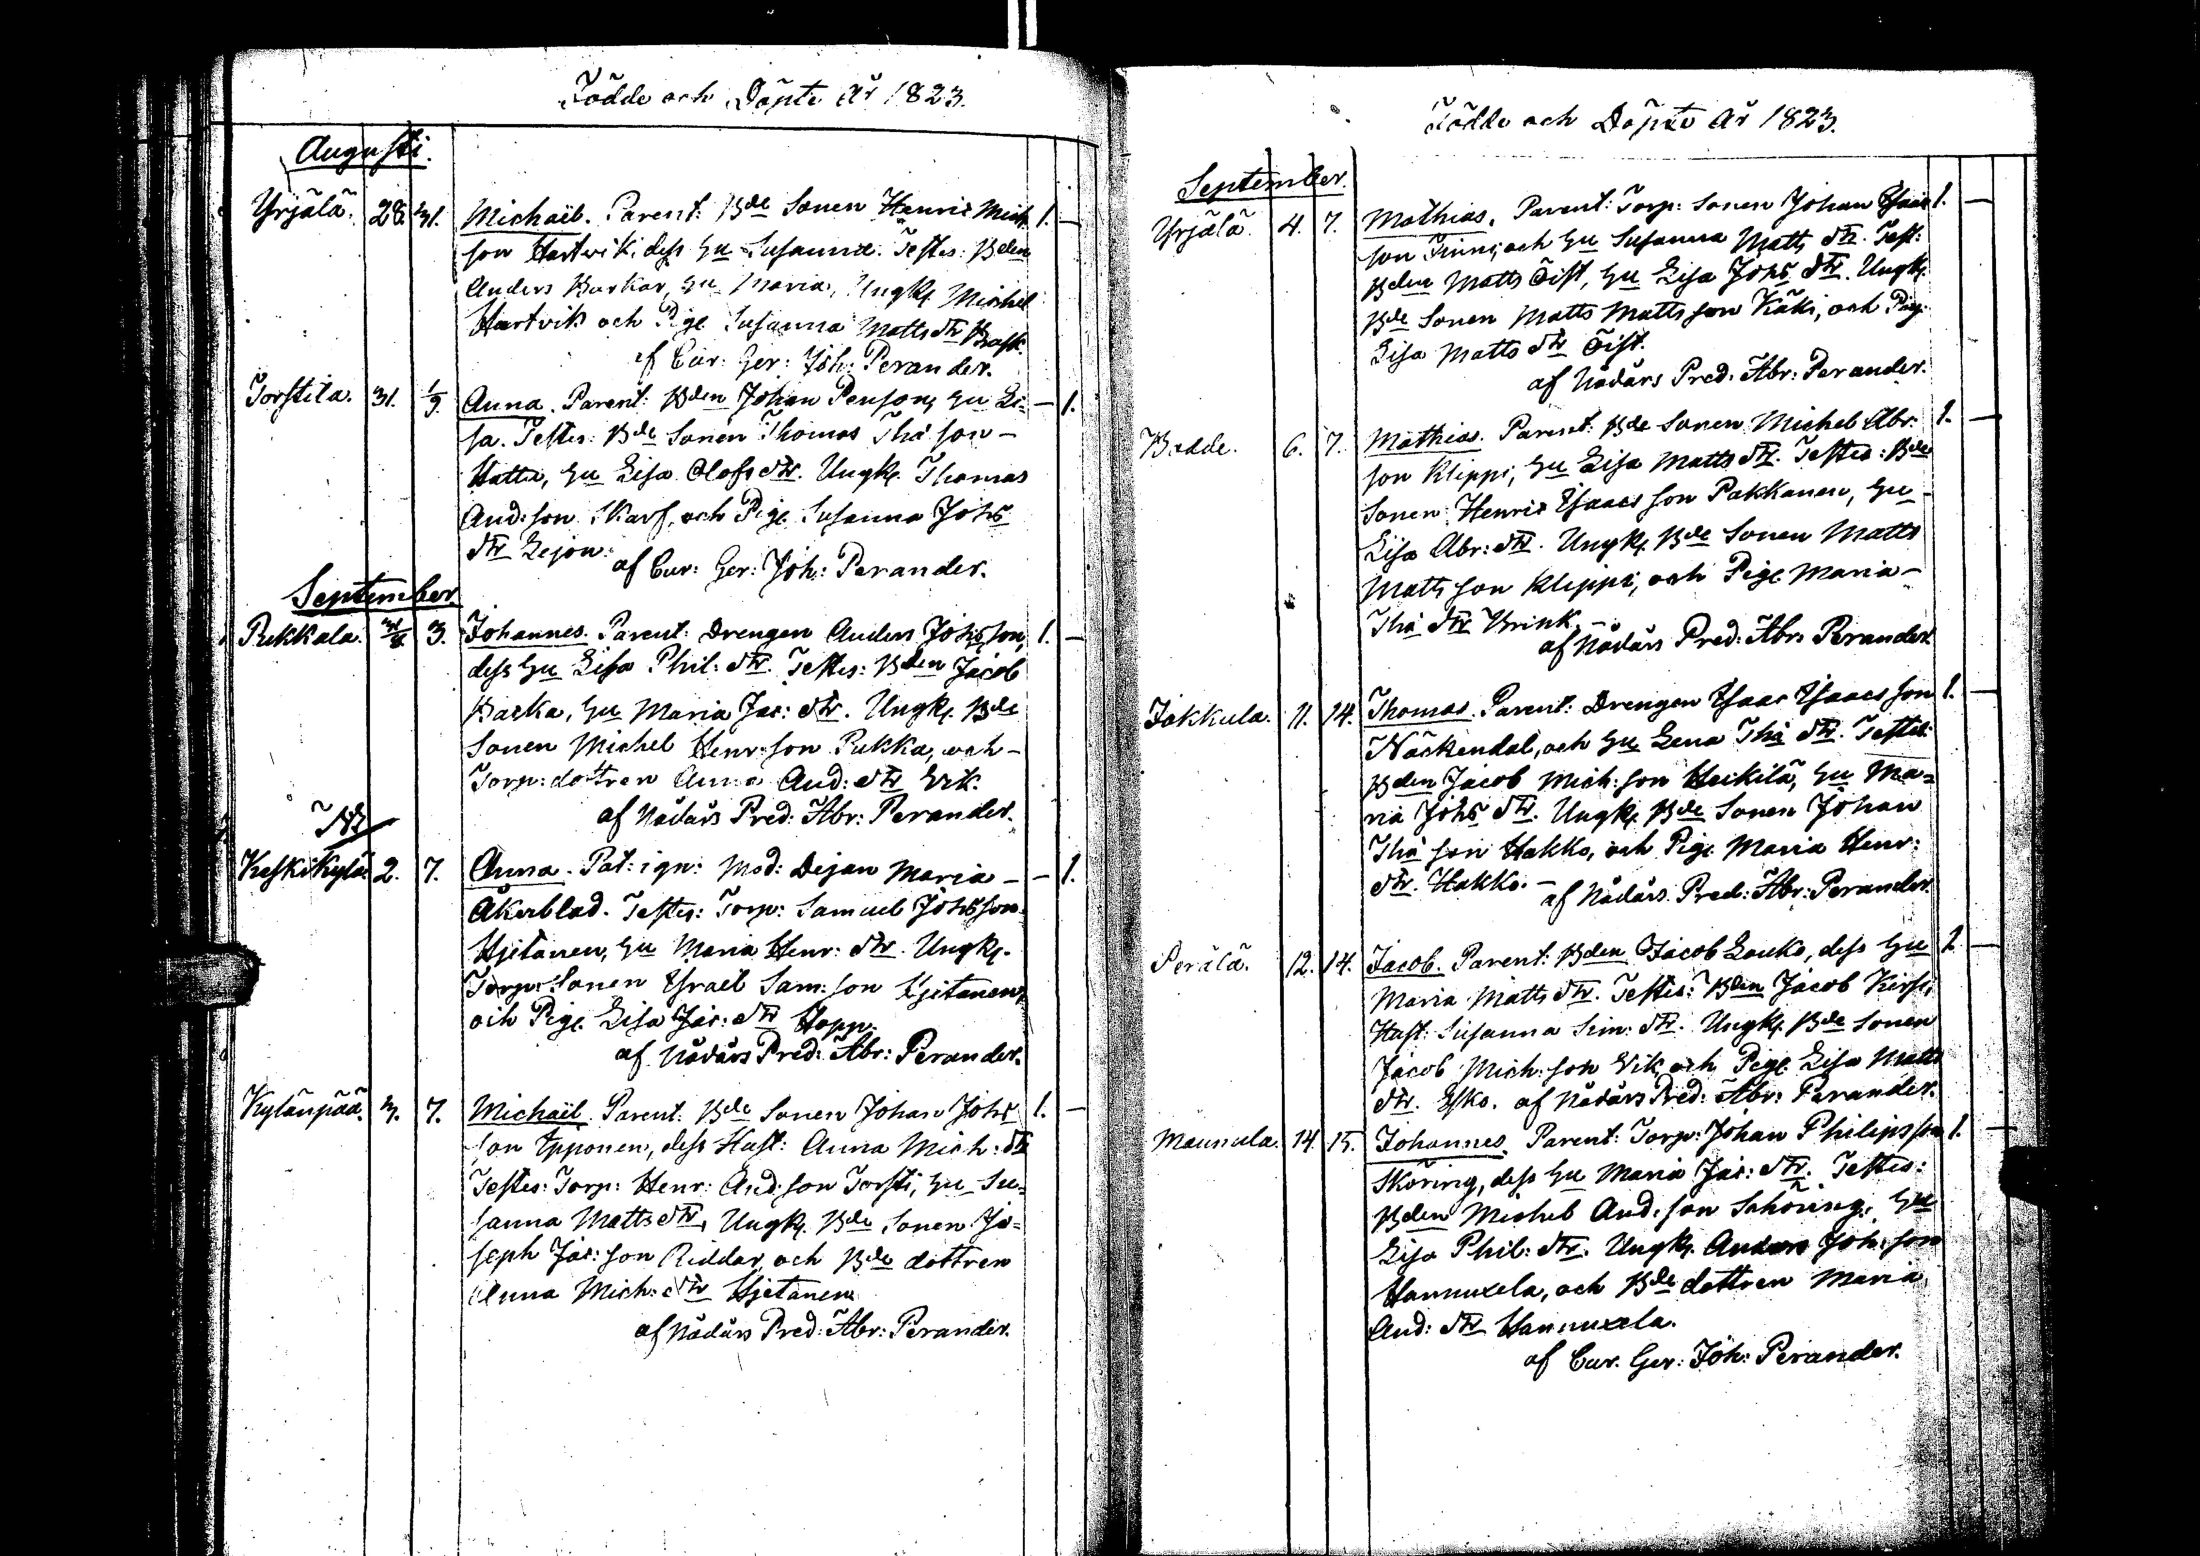 Födde och Döpte År 1823.
Augusti.
Yrjälä. 28. 31. Michaël. Parent: Bde Sonen Henric Mich: 1. —
son Hartvik, dess Hu Susanna. Testes: Bden
Anders Barkar, Hu Maria, Ungk. Michel
Hartvik och Pig. Susanna Matts dr Bask.
af Cur: Ger: Joh: Perander.
Torstila. 31. 1/9. Anna. Parent: Bden Johan Penson, Hu Li= — 1.
sa. Testes: Bde Sonen Thomas Tha son —
Hatta, Hu Lisa Olofs dr. Ungk. Thomas
And: son Skarf, och Pig. Susanna Johs
dr Lejon.
af Cur: Ger: Joh: Perander.
September
Pukkala. 31/8 3. Johannes. Parent: Drengen Anders Johs son, 1. —
dess Hu Lisa Phil: dr. Testes: Bden Jacob
Backa, Hu Maria Jac: dr. Ungk. Bde
Sonen Michel Henr: son Pukka, och —
Torp: dottren Anna And: dr Vik.
af Nådårs Pred: Abr: Perander.
Keskikylä 2. 7. Anna. Pat: ign: Mod: Dejan Maria — — 1.
Åkerblad. Testes: Torp: Samuel Johs son
Hjetanen, Hu Maria Henr: dr. Ungk.
Torp: Sonen Israel Sam: son Hjetanen,
och Pig. Lisa Jac: dr Hopp.
af Nådårs Pred: Abr: Perander.
Kylänpää. 3. 7. Michaël. Parent: Bde Sonen Johan Johs 1. —
son Ypponen, dess Hust: Anna Mich: dr
Testes: Torp: Henr: And: son Torsti, Hu Su=
sanna Matts dr, Ungk. Bde Sonen Jo=
seph Jac: son Riddar, och Bde dottren
Anna Mich: dr Hjetanen
af Nådårs Pred: Abr: Perander.
Födde och Döpte År 1823.
September.
Yrjälä. 4. 7. Mathias. Parent: Torp: Sonen Johan Isaacs 1. —
son Finni, och Hu Susanna Matts dr. Test:
Bden Matts Tist, Hu Lisa Johs dr. Ungk.
Bde Sonen Matts Matts son Käki, och Pig.
Lisa Matts dr Tist.
af Nådårs Pred: Abr: Perander.
6. 7. Mathias. Parent: Bde Sonen Michel Abr: 1. —
son Klippi, Hu Lisa Matts dr. Testes: Bde
Sonen Henric Isaacs son Pakkanen, Hu —
Lisa Abr: dr. Ungk. Bde Sonen Matts
Matts son Klippi, och Pige Maria —
Tha dr Brink. —
af Nådårs Pred: Abr: Perander.
Jakkula. 11. 14. Thomas. Parent: Drengen Isaac Isaacs son 1. —
Näckendal, och Hu Lena Tha dr. Testes:
Bden Jacob Mich: son Heikilä, Hu Ma=
ria Johs dr. Ungk. Bde Sonen Johan
Tha son Hakko, och Pige Maria Henr:
dr. Hakko. — af Nådårs Pred: Abr: Perander.
Perälä. 12. 14. Jacob. Parent: Bden Jacob Louko, dess Hu 1. —
Maria Matts dr. Testes: Bden Jacob Kirsi,
Hust: Susanna Sim: dr. Ungk. Bde Sonen
Jacob Mich: son Vik, och Pige Lisa Matts
dr. Esko. af Nådårs Pred: Abr: Perander.
Maunula. 14. 15. Johannes. Parent: Torp: Johan Philips son 1. —
Sköring, dess Hu Maria Jac: dr. Testes:
Bden Michel And: son Schöring, Hu
Lisa Phil: dr. Ungk. Anders Joh: son
Hannuxela, och Bde dottren Maria
And: dr Hannuxela.
af Cur. Ger: Joh: Perander.